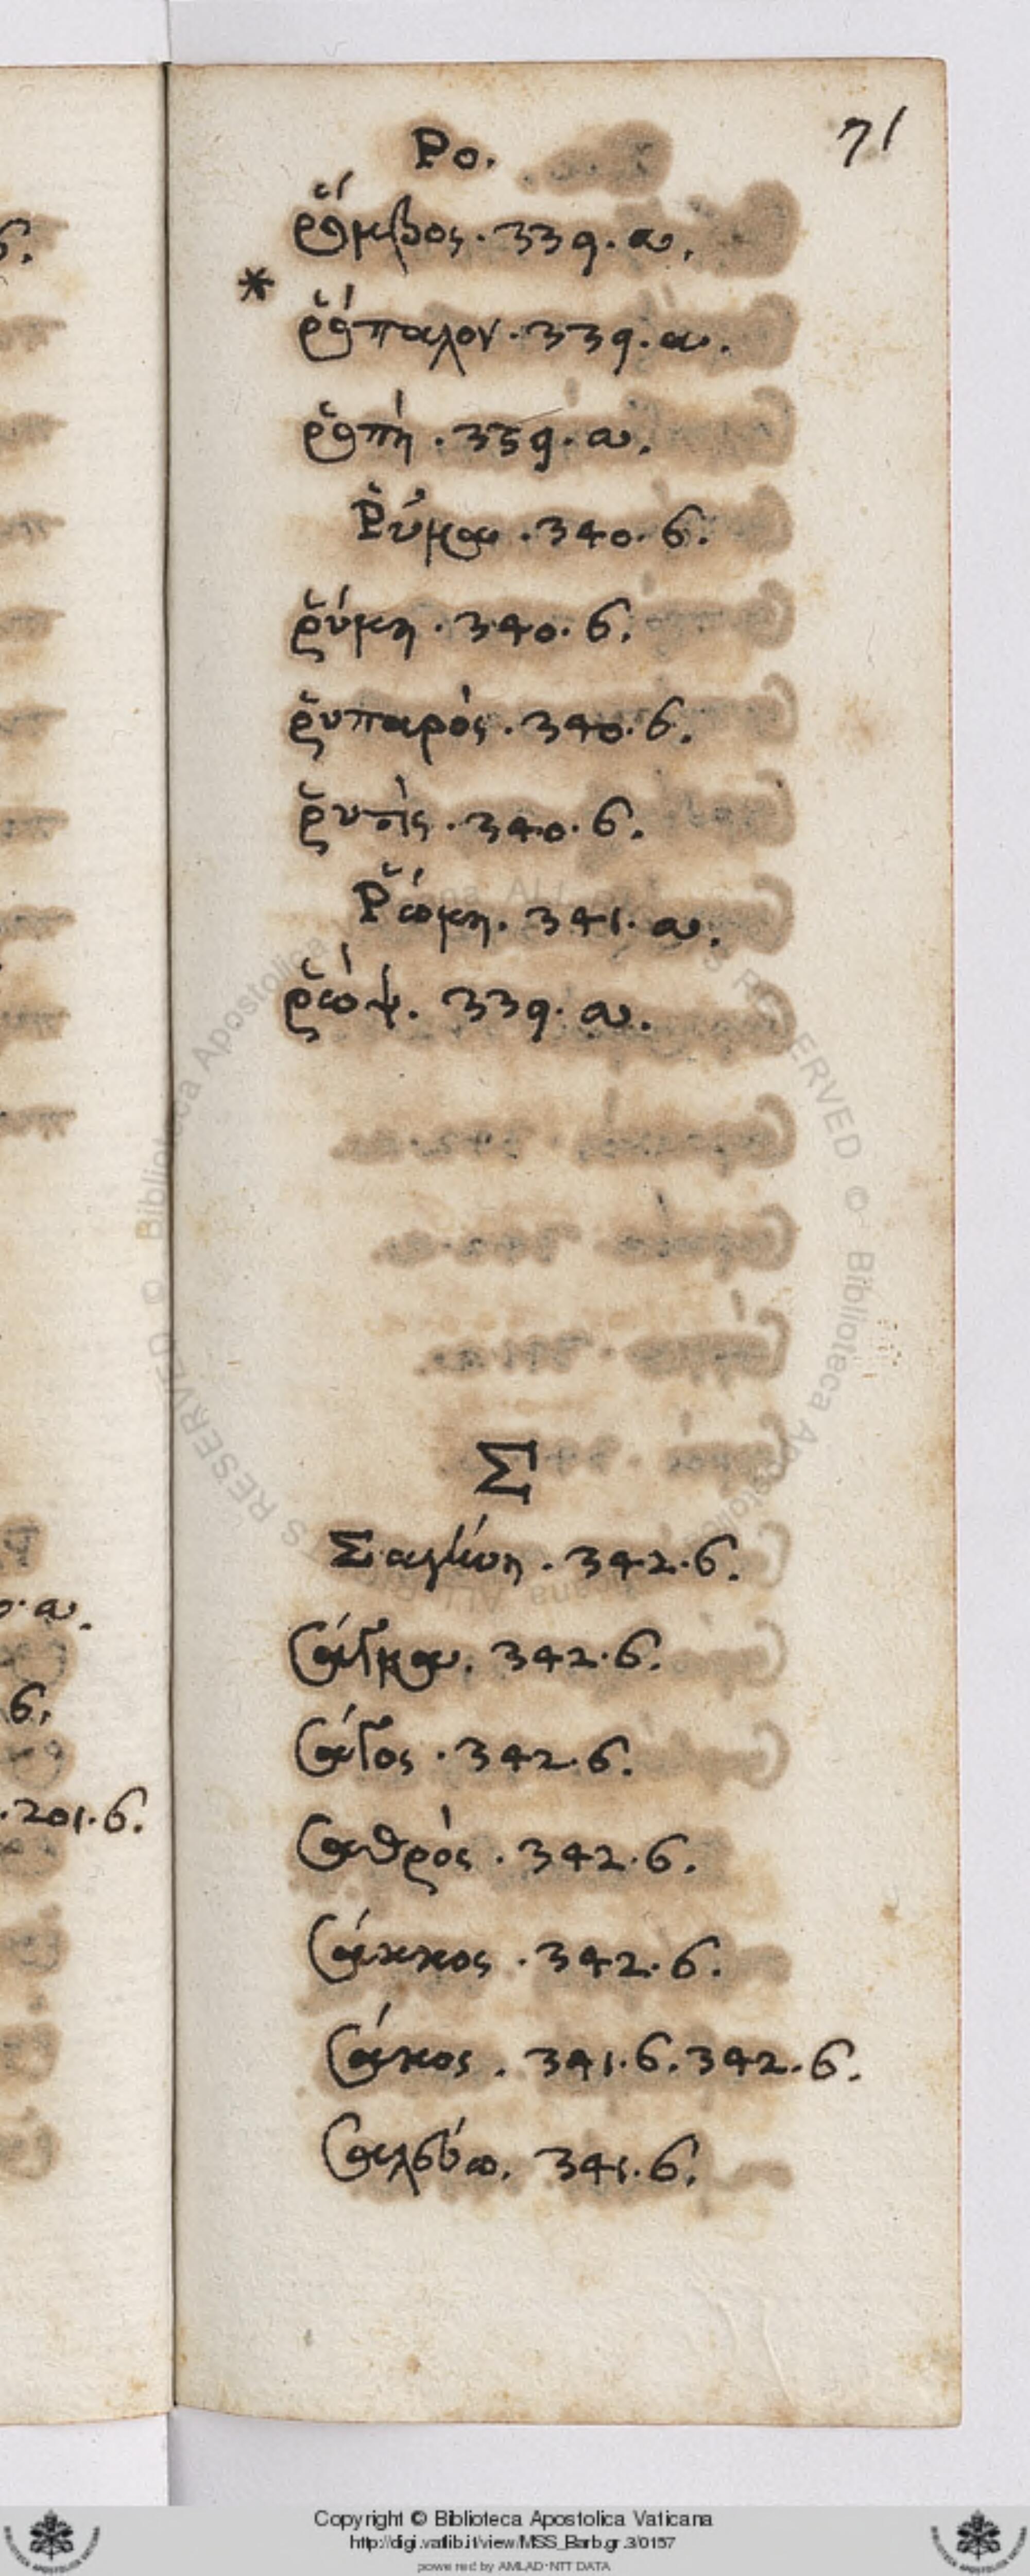 71
Ρο.
ῥόμβος . 339. α.
* ῥόπαλον . 339. α.
ῥοπὴ . 339. α.
Ῥύμα . 340. β.
ῥύμη . 340. β.
ῥυπαρὸς . 340. β.
ῥυτὶς . 340. β.
Ῥώμη . 341. α.
ῥώψ . 339. α.
Σ
Σαγήνη . 342. β.
σάγμα . 342. β.
σάγος . 342. β.
σαθρὸς . 342. β.
σάκκος . 342. β.
σάκος . 341. β. 342. β.
341. β.
. α.
β.
. 201. β.
Copyright © Biblioteca Apostolica Vaticana
http://digi.vatlib.it/view/MSS_Barb.gr.3/0157
powered by AMLAD-NTT DATA